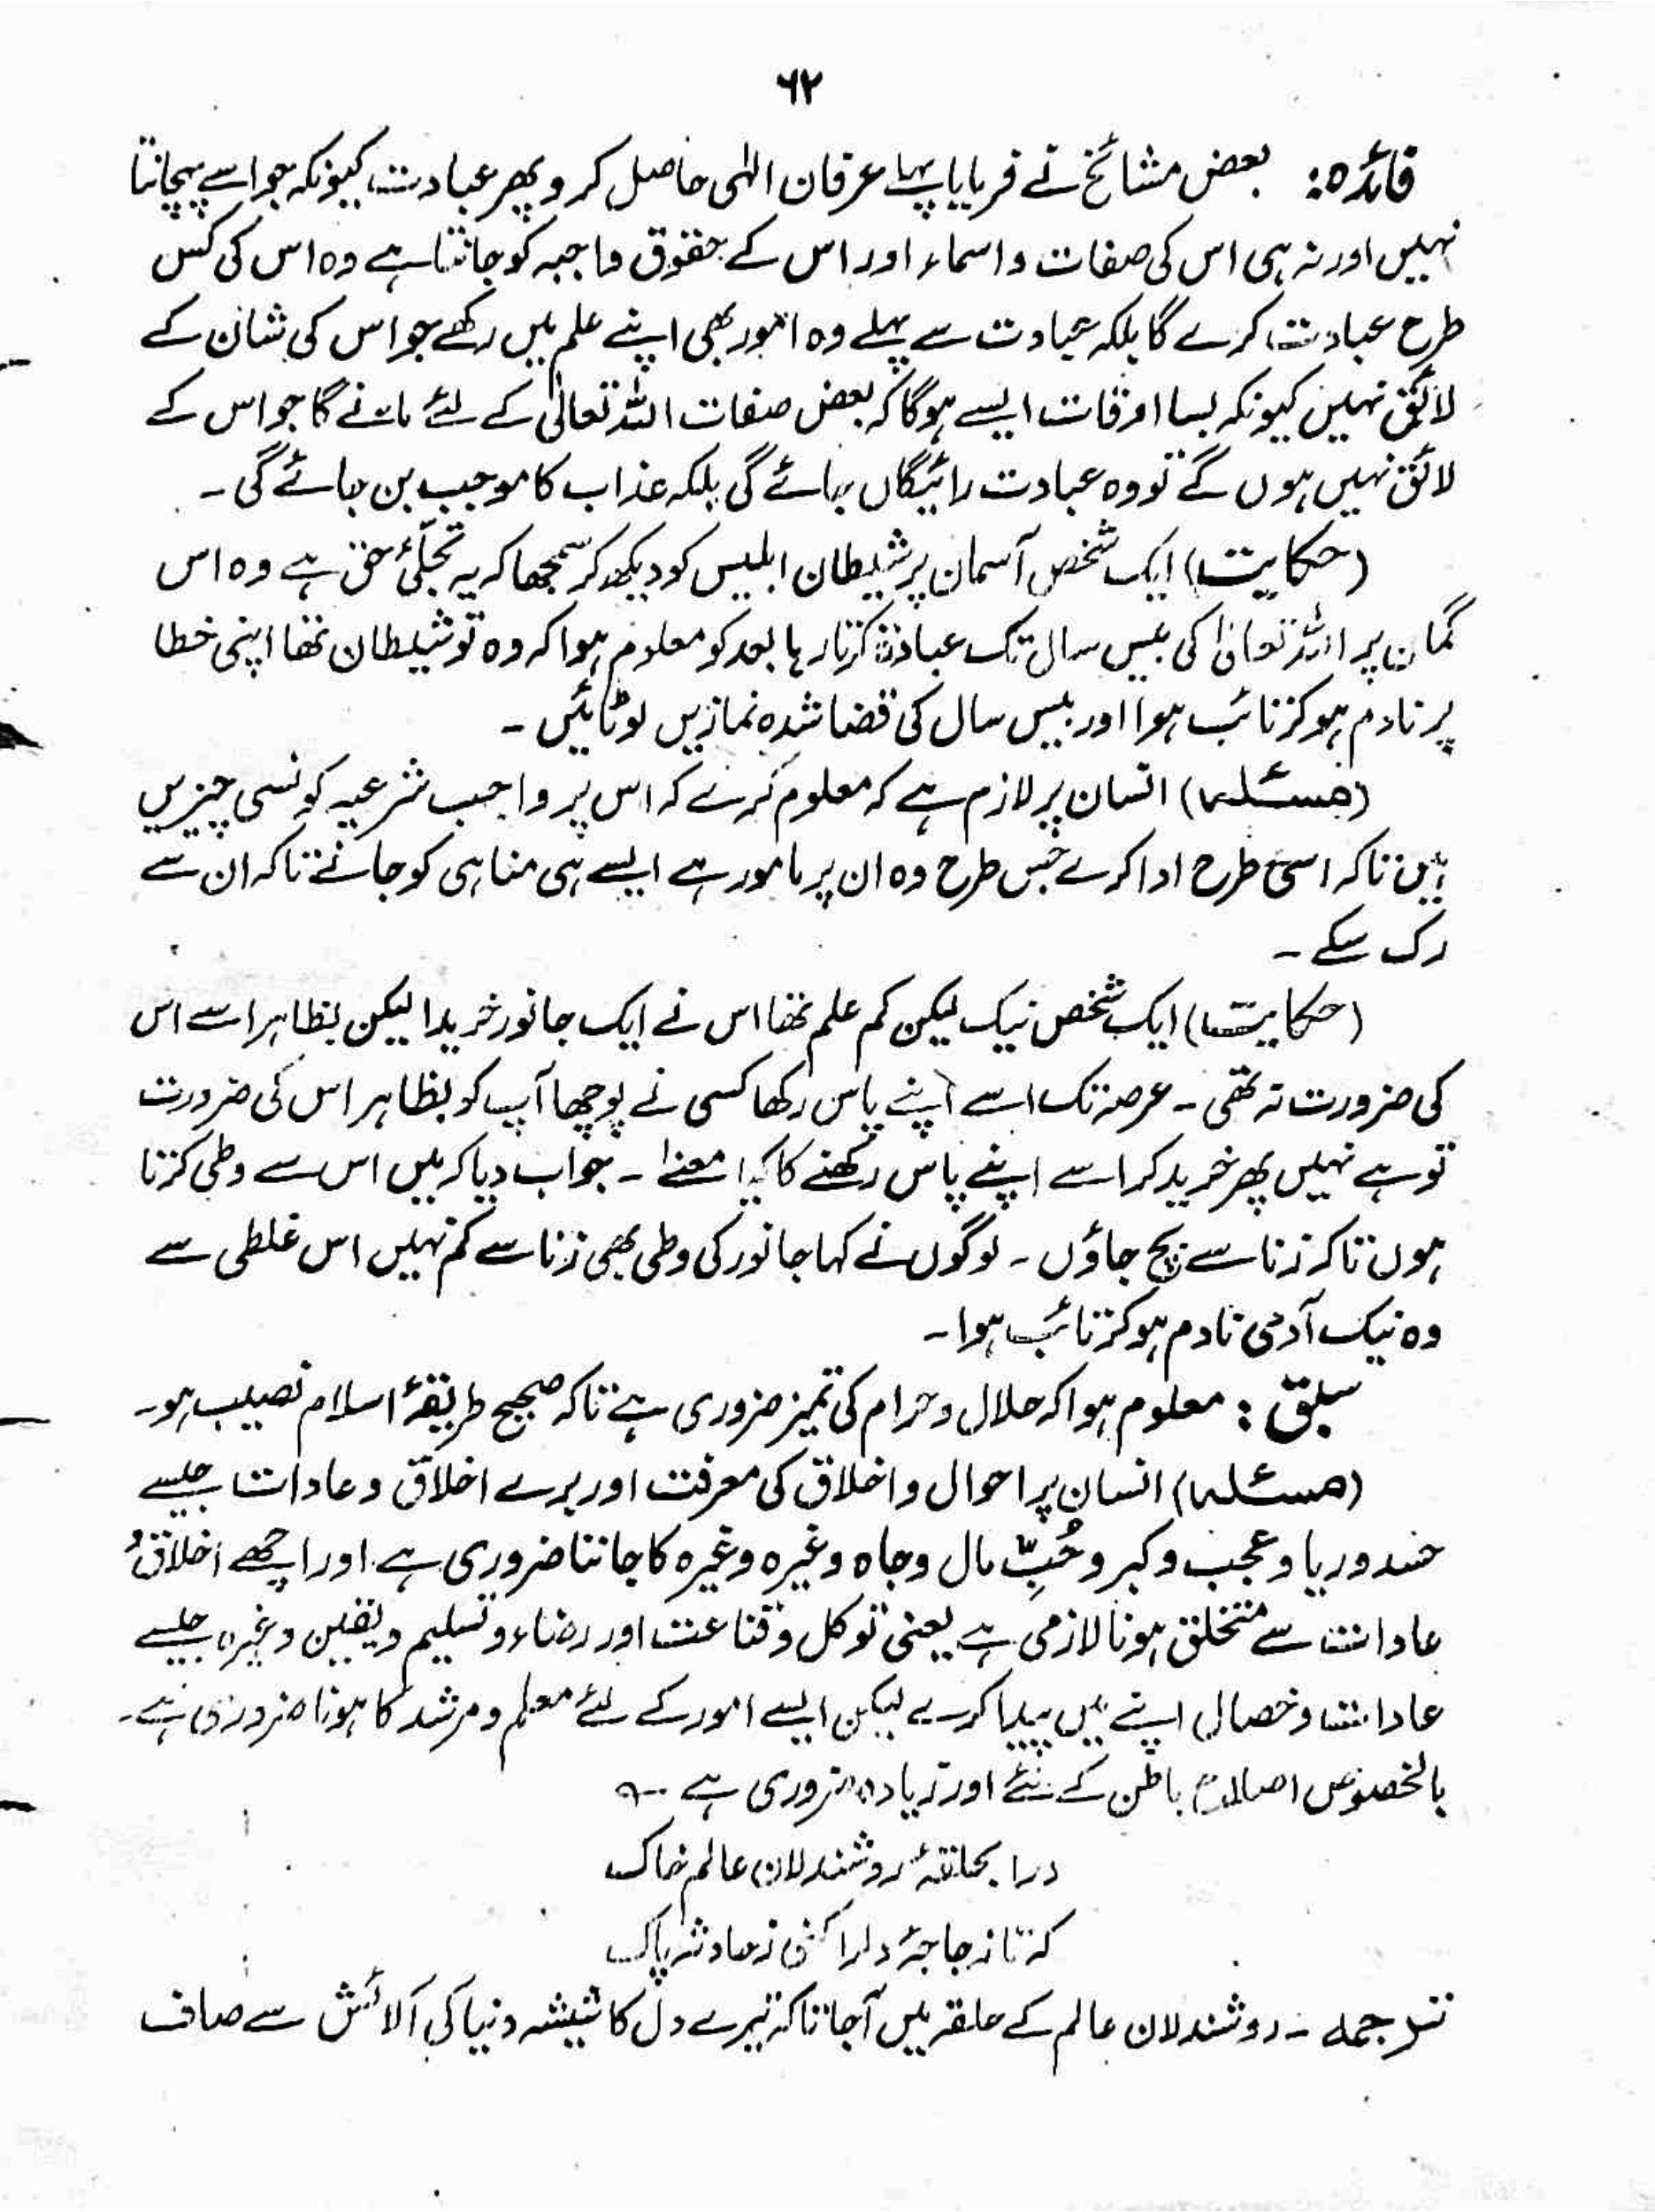 ۶۲
فائدہ: بعض مشائخ نے فرمایا پہلے عرفان الٰہی حاصل کرو پھر عبادت کیونکہ جو اسے پہچانتا
نہیں اور نہ ہی اس کی صفات و اسماء اور اس کے حقوق واجبہ کو جانتا ہے وہ اس کی کس
طرح عبادت کرے گا بلکہ عبادت سے پہلے وہ امور بھی اپنے علم میں رکھے جو اس کی شان کے
لائق نہیں کیونکہ بسا اوقات ایسے ہوگا کہ بعض صفات اللہ تعالیٰ کے لئے مانے گا جو اس کے
لائق نہیں ہوں گے تو وہ عبادت رائیگاں جائے گی بلکہ عذاب کا موجب بن جائے گی ۔
(حکایت) ایک شخص آسمان پر شیطان ابلیس کو دیکھ کر سمجھا کہ یہ تجلّیٔ حق ہے وہ اس
گمان پر اللہ تعالیٰ کی بیس سال تک عبادۃ کرتا رہا بعد کو معلوم ہوا کہ وہ تو شیطان تھا اپنی خطا
پر نادم ہو کر تائب ہوا اور بیس سال کی قضا شدہ نمازیں لوٹائیں ۔
(مسئلہ) انسان پر لازم ہے کہ معلوم کرے کہ اس پر واجب شرعیہ کونسی چیزیں
ہیں تاکہ اسی طرح ادا کرے جس طرح وہ ان پر مامور ہے ایسے ہی مناہی کو جانے تاکہ ان سے
رک سکے ۔
(حکایت) ایک شخص نیک لیکن کم علم تھا اس نے ایک جانور خریدا لیکن بظاہر اسے اس
کی ضرورت نہ تھی ۔ عرصہ تک اسے اپنے پاس رکھا کسی نے پوچھا آپ کو بظاہر اس کی ضرورت
تو ہے نہیں پھر خرید کر اسے اپنے پاس رکھنے کا کیا معنٰے ۔ جواب دیا کہ میں اس سے وطی کرتا
ہوں تاکہ زنا سے بچ جاؤں ۔ لوگوں نے کہا جانور کی وطی بھی زنا سے کم نہیں اس غلطی سے
وہ نیک آدمی نادم ہو کر تائب ہوا ۔
سبق : معلوم ہوا کہ حلال و حرام کی تمیز ضروری ہے تاکہ صحیح طریقۂ اسلام نصیب ہو ۔
(مسئلہ) انسان پر احوال و اخلاق کی معرفت اور برے اخلاق و عادات جیسے
حسد و ریا و عجب و کبر و حُبِّ مال و جاہ وغیرہ وغیرہ کا جاننا ضروری ہے اور اچھے اخلاق و
عادات سے متخلق ہونا لازمی ہے یعنی توکل و قناعت اور رضاء و تسلیم و یقین وغیرہ جیسے
عادات و خصال اپنے میں پیدا کرے لیکن ایسے امور کے لئے معلم و مرشد کا ہونا ضروری ہے ۔
بالخصوص اصلاح باطن کے لئے اور زیادہ ضروری ہے ۔؎
درا بحلقۂ روشندلان عالم خاک
کہ تا زجاجۂ دلرا کنی ز حادثہ پاک
ترجمہ ۔ روشندلان عالم کے حلقہ میں آجا تاکہ تیرے دل کا شیشہ دنیا کی آلائش سے صاف